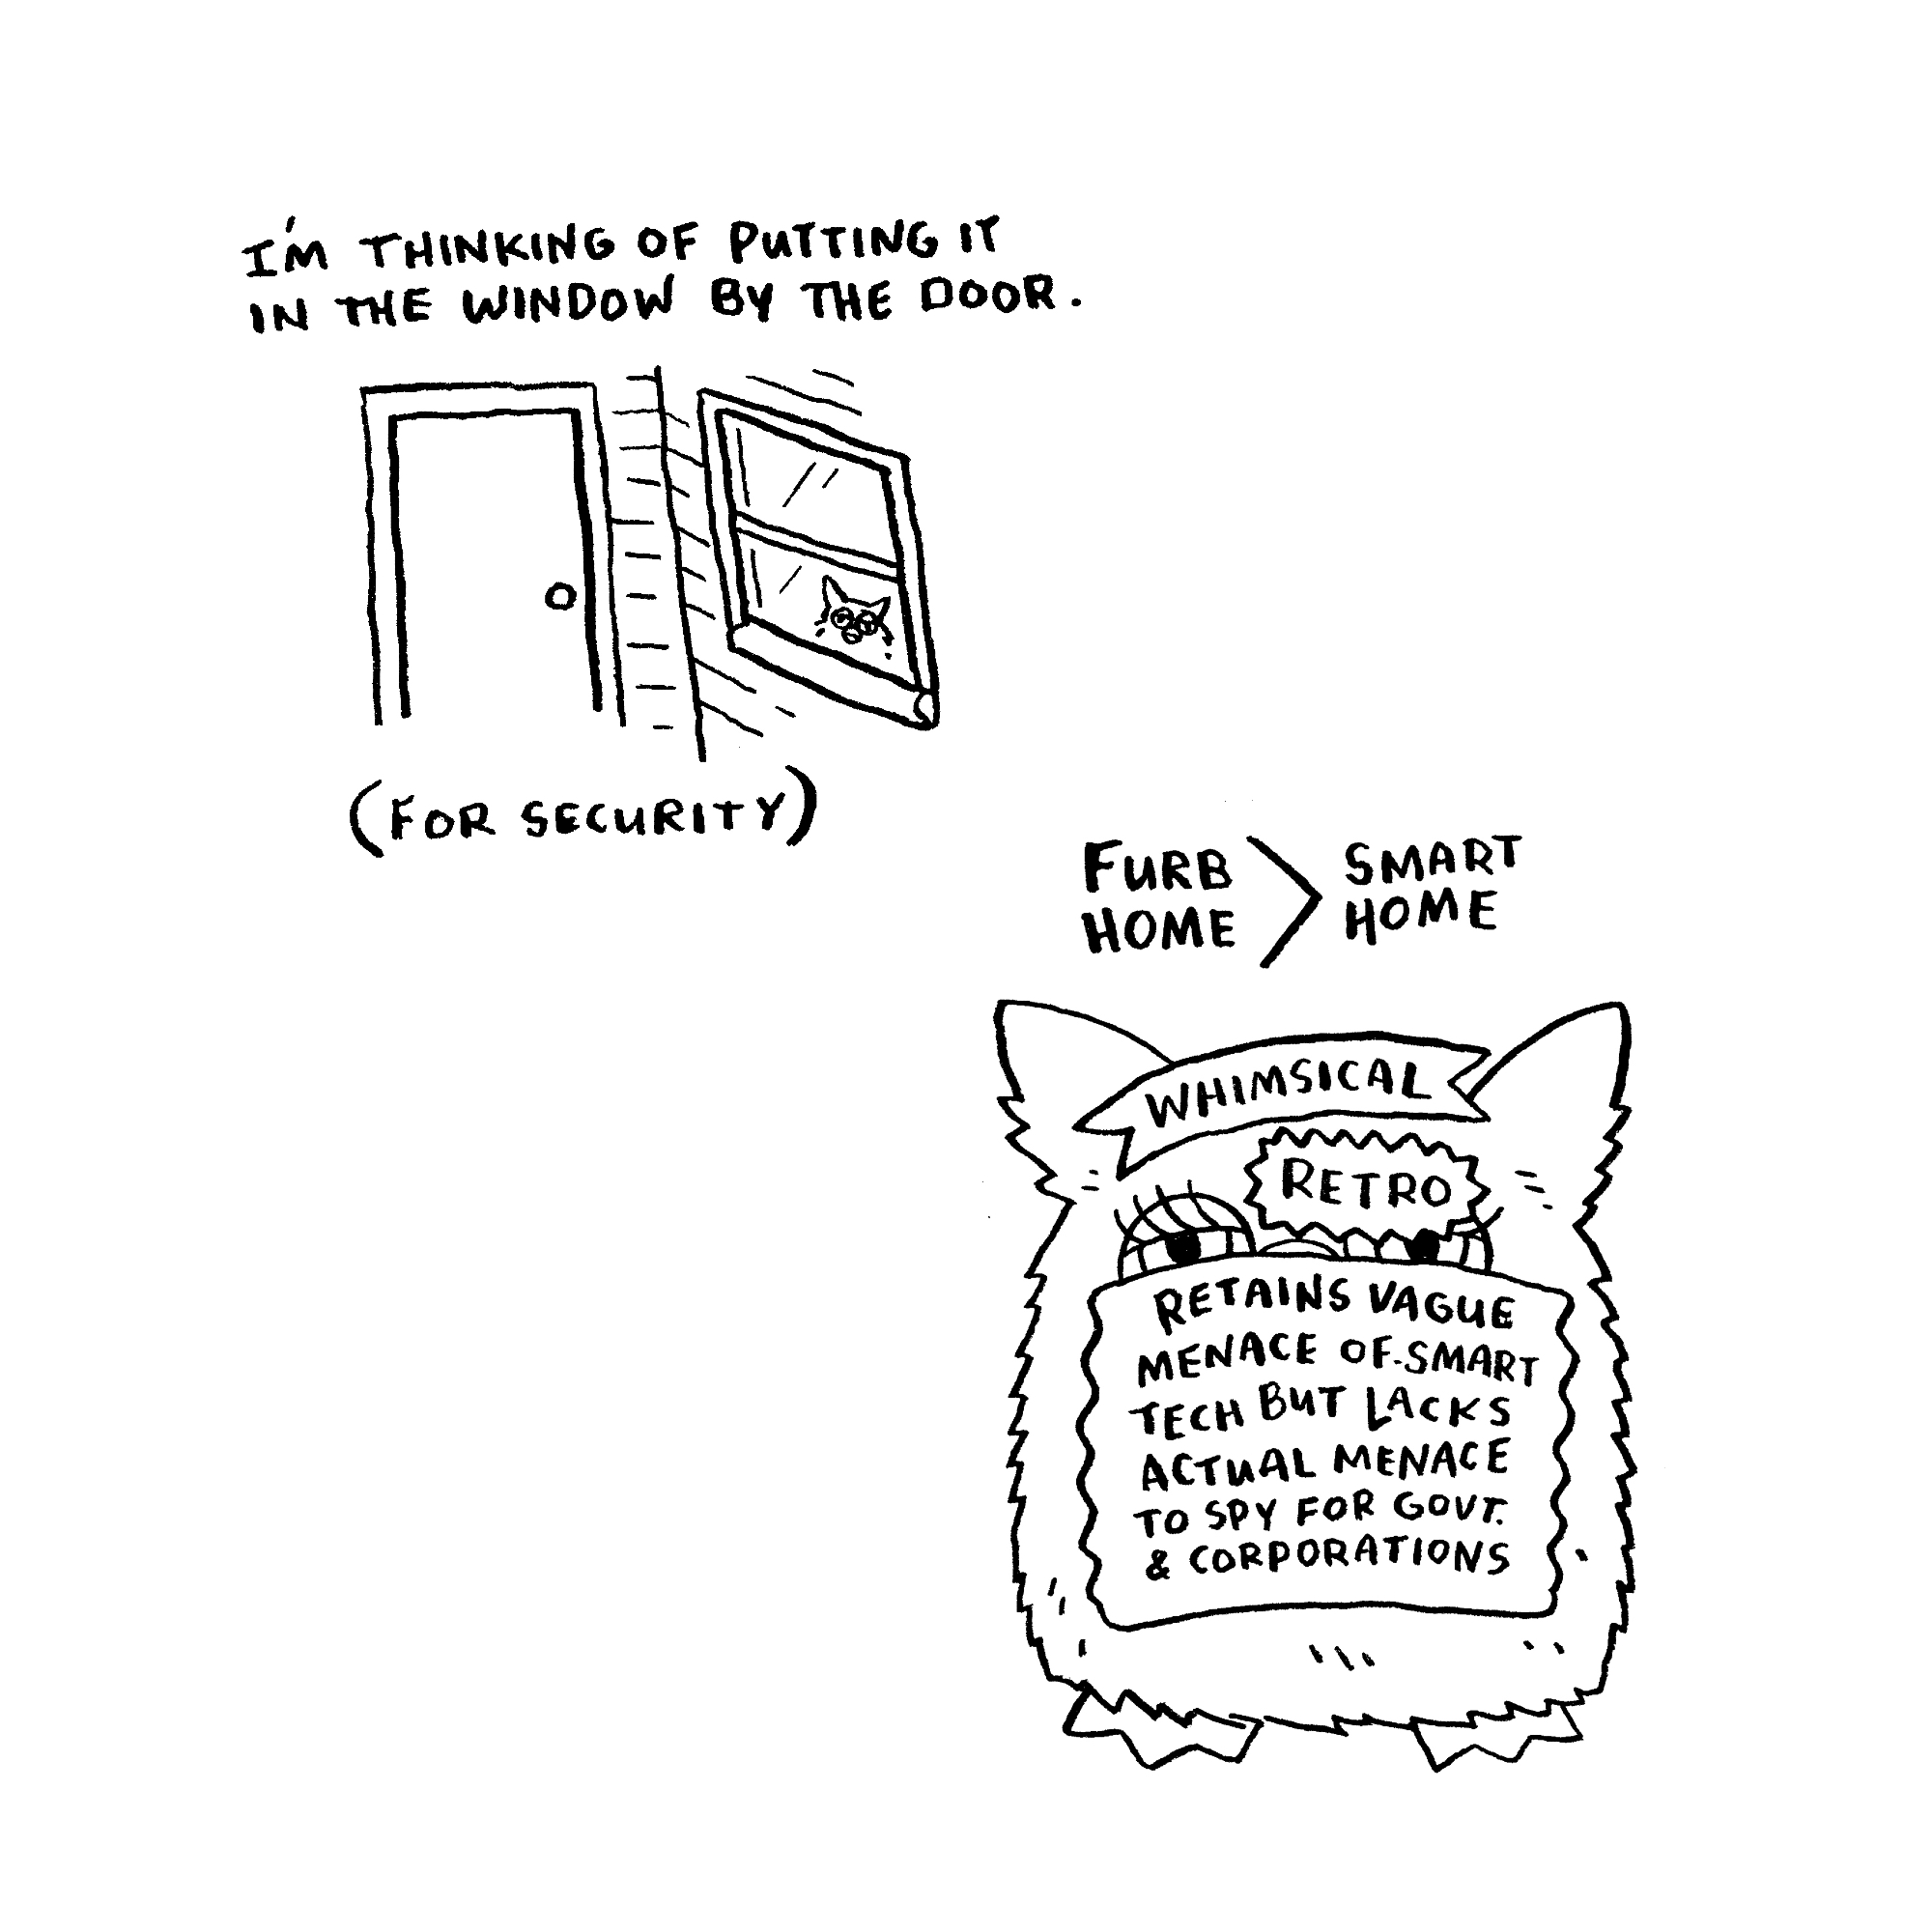 I'M THINKING OF PUTTING IT
IN THE WINDOW BY THE DOOR.
(FOR SECURITY)
FURB
HOME
>
SMART
HOME
WHIMSICAL
RETRO
RETAINS VAGUE
MENACE OF SMART
TECH BUT LACKS
ACTUAL MENACE
TO SPY FOR GOVT.
& CORPORATIONS